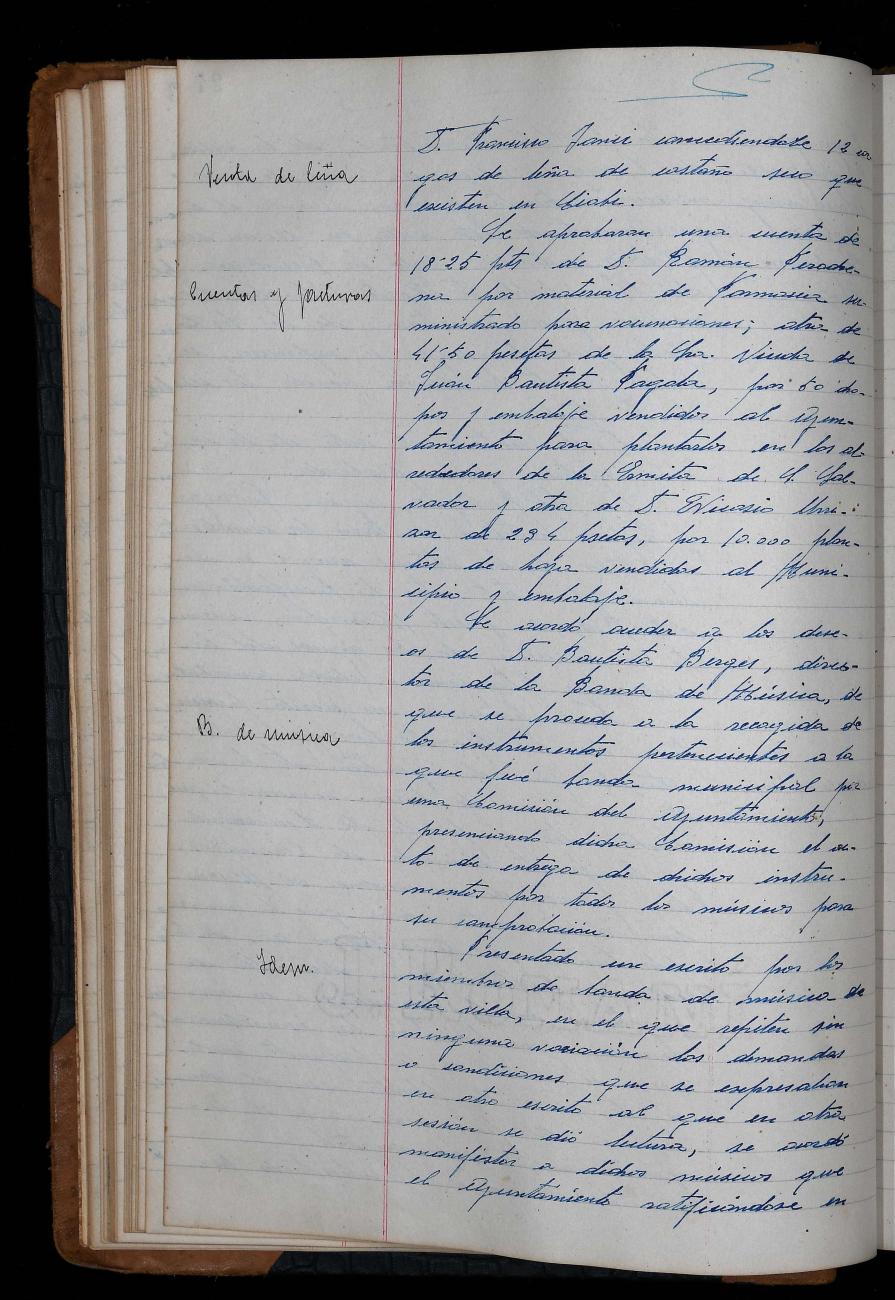 D. Francisco concediendole 12 car
Venta de leña
gas de leña de castaño seco que
existen en
Se aprobaron una cuenta de
18'25 pts de D. Ramón
Cuentas y facturas
na por material de Farmacia su-
ministrado para vacunaciones; otra de
41'50 pesetas de la Sra. Viuda de
Juán Bautista Pagola, por 50 cho-
pos y embalaje vendidos al Ayun-
tamiento para plantarlos en los al-
rededores de la Ermita de S. Sal-
vador y otra de D. Nicasio Urri-
zar de 234 psetas, por 10.000 plan-
tas de haya vendidas al Muni-
cipio y embalaje.
Se acordó acceder a los dese-
os de D. Bautista Berges, direc-
tor de la Banda de Música, de
que se proceda a la recogida de
B. de música
los instrumentos pertenecientes a la
que fué banda municipal por
una Comisión del Ayuntamiento,
presenciando dicha Comisión el ac-
to de entrega de dichos instru-
mentos por todos los músicos para
su comprobación.
Idem.
Presentado un escrito por los
miembros de banda de música de
esta villa, en el que repiten sin
ninguna variación las demandas
o condiciones que se expresaban
en otro escrito al que en otra
sesión se dió lectura, se acordó
manifestar a dichos músicos que
el Ayuntamiento ratificándose en